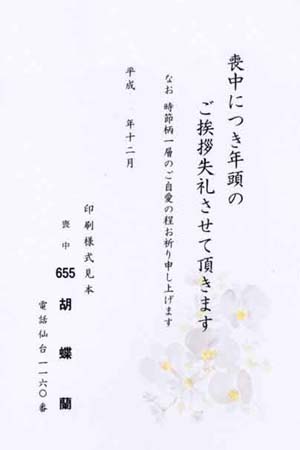 喪中につき年頭の
ご挨拶失礼させて頂きます
なお 時節柄一層のご自愛の程お祈り申し上げます
平成 年十二月
印刷様式見本
喪中
655 胡蝶蘭
電話仙台一一六〇番